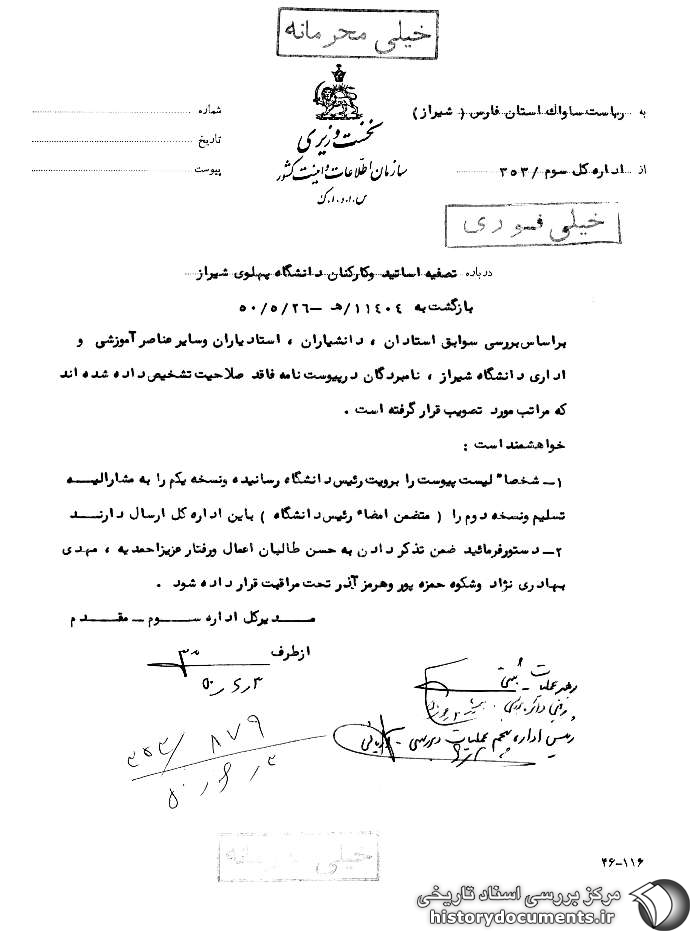 خیلی محرمانه
به ریاست ساواک استان فارس ( شیراز )
شماره
نخست وزیری
تاریخ
از اداره کل سوم / ۳۵۳
سازمان اطلاعات و امنیت کشور
پیوست
س.ا.و.ا.ک
خیلی فوری
درباره تصفیه اساتید وکارکنان دانشگاه پهلوی شیراز
بازگشت به ۱۱۴۰۴/هـ -۵۰/۵/۲۶
براساس بررسی سوابق استادان ، دانشیاران ، استادیاران وسایر عناصر آموزشی و
اداری دانشگاه شیراز ، نامبردگان درپیوست نامه فاقد صلاحیت تشخیص داده شده اند
که مراتب مورد تصویب قرار گرفته است .
خواهشمند است :
۱- شخصا" لیست پیوست را برویت رئیس دانشگاه رسانیده ونسخه یکم را به مشارالیه
تسلیم ونسخه دوم را ( متضمن امضاء رئیس دانشگاه ) باین اداره کل ارسال دارند
۲- دستورفرمائید ضمن تذکر دادن به حسن طالبان اعمال ورفتار عزیزاحمدیه ، مهدی
بهادری نژاد وشکوه حمزه پور وهرمز آذر تحت مراقبت قرار داده شود .
مدیرکل اداره سوم - مقدم
ازطرف
رهبر عملیات
رئیس اداره یکم عملیات و بررسی
۳۵۳/ ۸۷۹
خیلی محرمانه
۴۶-۱۱۶
مرکز بررسی اسناد تاریخی
historydocuments.ir